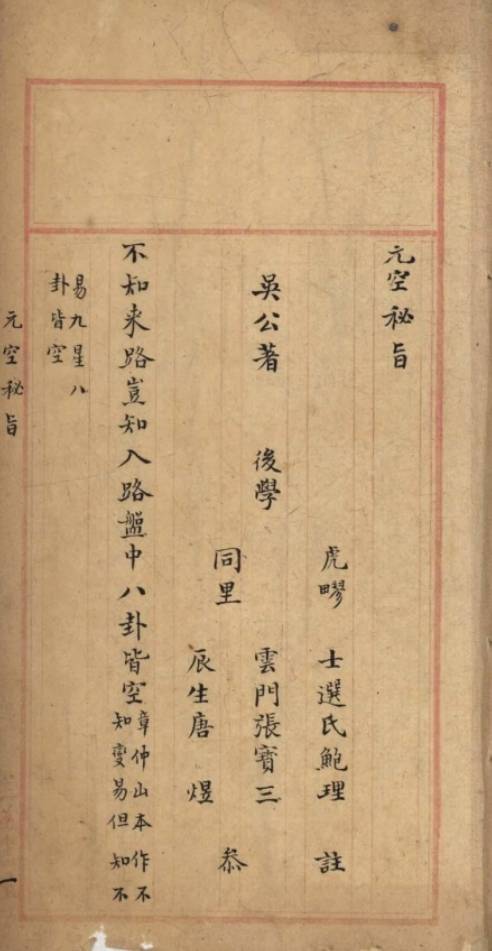 元空秘旨
虎疁 士選氏鮑理 註
吳公著 後學 雲門張寶三
同里 叅
辰生唐煜
不知来路豈知入路盤中八卦皆空
章仲山本作不
知變易但知不
易九星八
卦皆空
元空秘旨
一